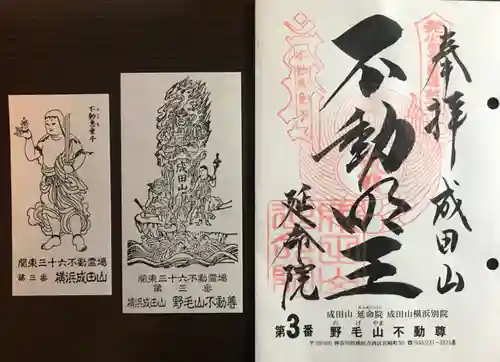 不動恵童子
関東三十六不動霊場
第三番 横浜成田山
成田山
関東三十六不動霊場
第三番
横浜成田山 野毛山不動尊
奉拝
成田山
不動明王
延命院
えんめいいん
成田山 延命院 成田山横浜別院
のげやま
第3番 野毛山不動尊